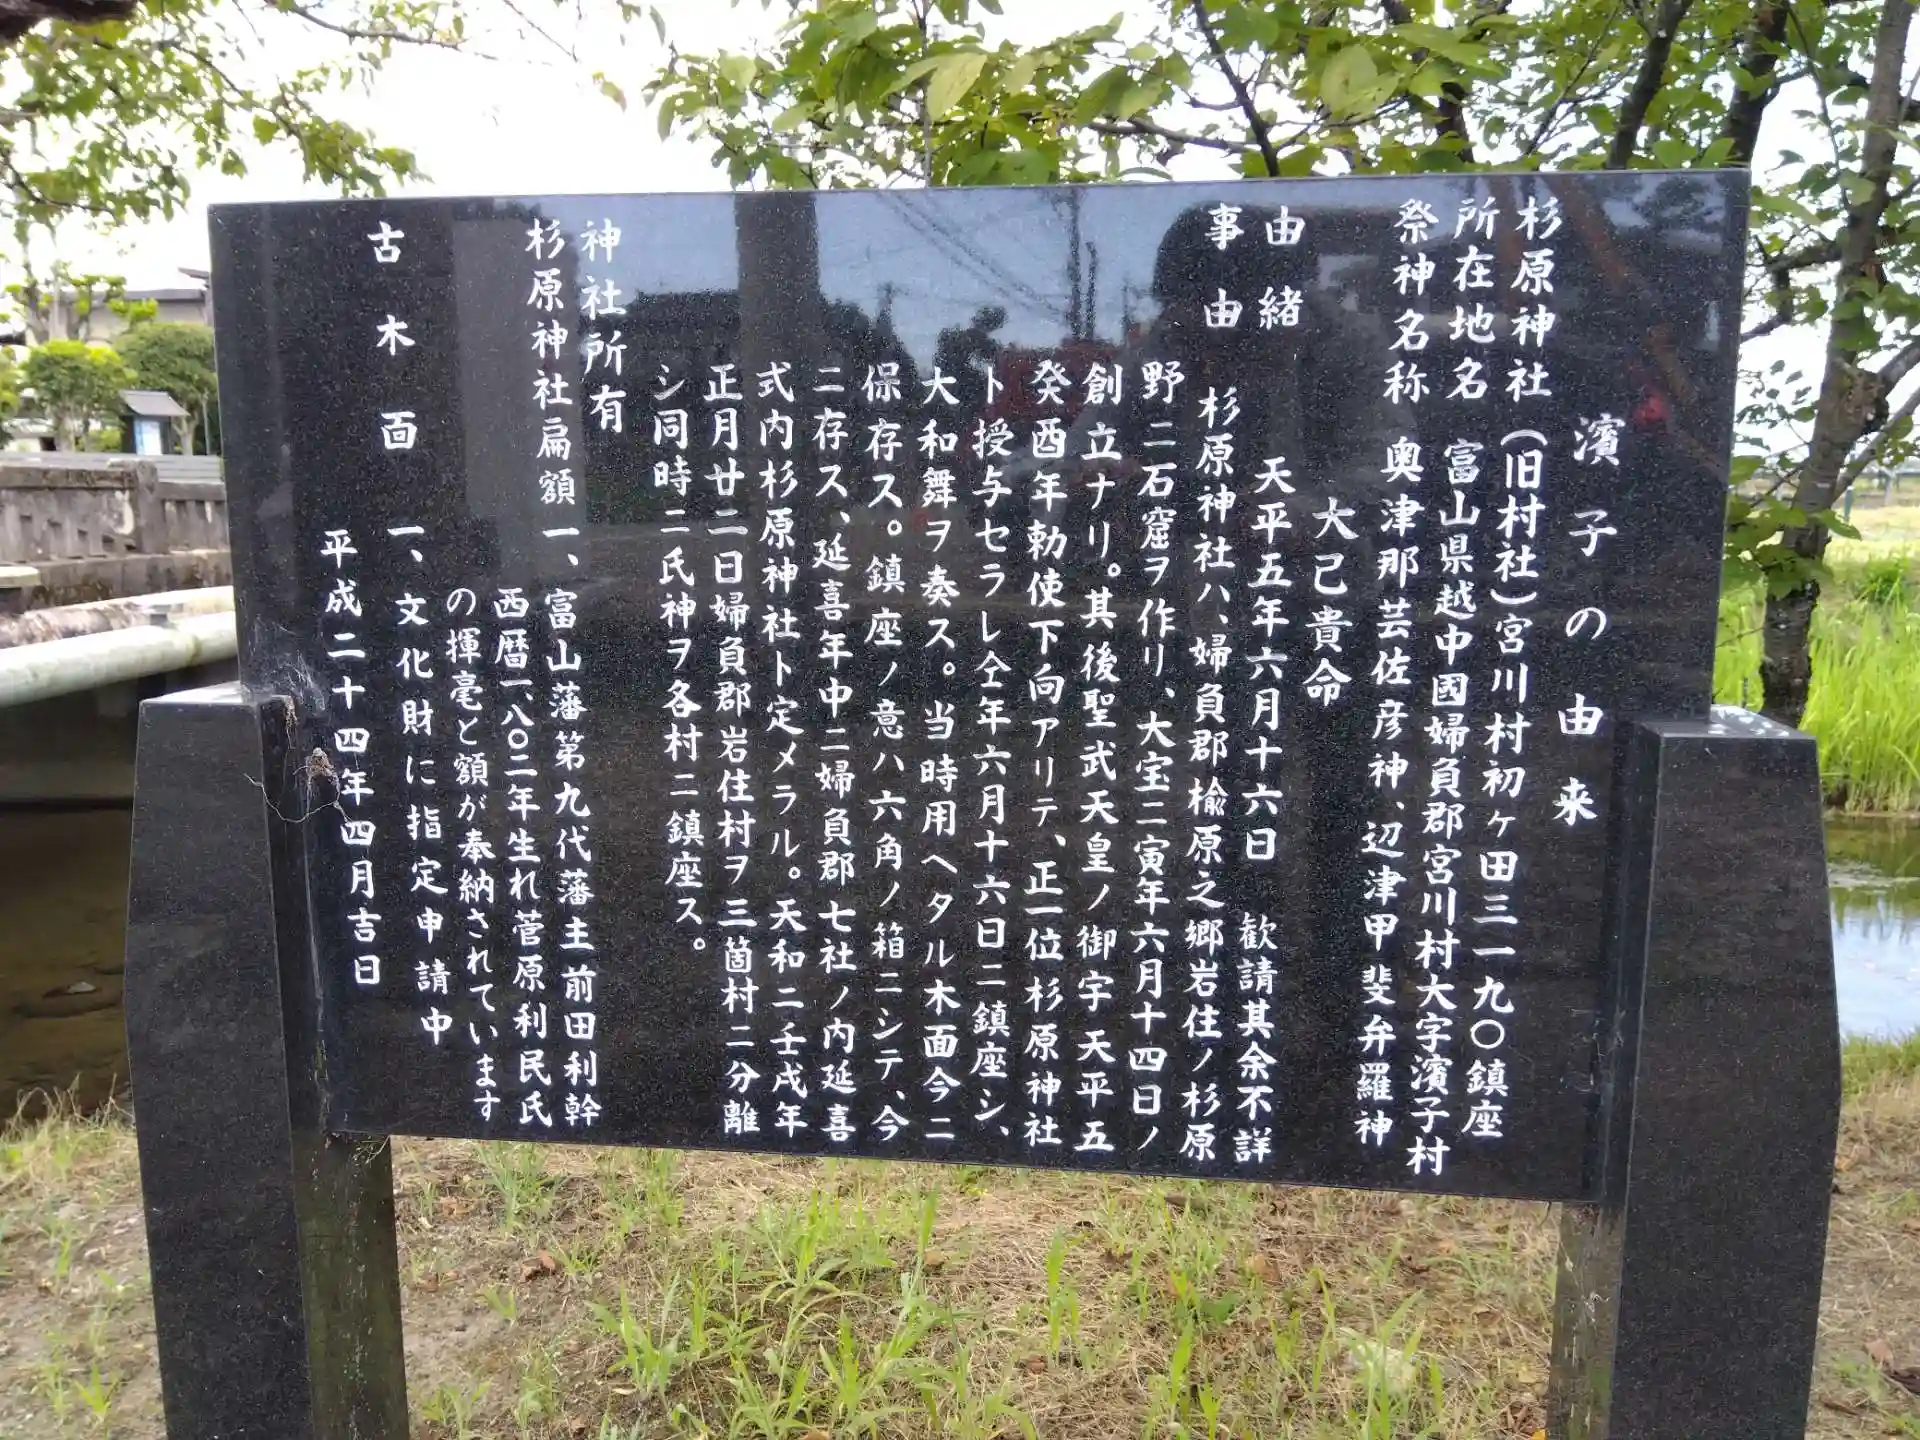 濱子の由来
杉原神社（旧村社）宮川村初ヶ田三一九〇鎮座
所在地名　富山県越中國婦負郡宮川村大字濱子村
祭神名称　奥津那芸佐彦神、辺津甲斐弁羅神
大己貴命
由緒　天平五年六月十六日　歓請其余不詳
事由　杉原神社ハ、婦負郡楡原之郷岩住ノ杉原
野ニ石窟ヲ作リ、大宝二寅年六月十四日ノ
創立ナリ。其後聖武天皇ノ御宇天平五
癸酉年勅使下向アリテ、正一位杉原神社
ト授与セラレ仝年六月十六日ニ鎮座シ、
大和舞ヲ奏ス。当時用ヘタル木面今ニ
保存ス。鎮座ノ意ハ六角ノ箱ニシテ、今
ニ存ス、延喜年中ニ婦負郡七社ノ内延喜
式内杉原神社ト定メラル。天和二壬戌年
正月廿二日婦負郡岩住村ヲ三箇村ニ分離
シ同時ニ氏神ヲ各村ニ鎮座ス。
神社所有
杉原神社扁額一、富山藩第九代藩主前田利幹
西暦一、八〇二年生れ菅原利民氏
の揮毫と額が奉納されています
古木面　一、文化財に指定申請中
平成二十四年四月吉日